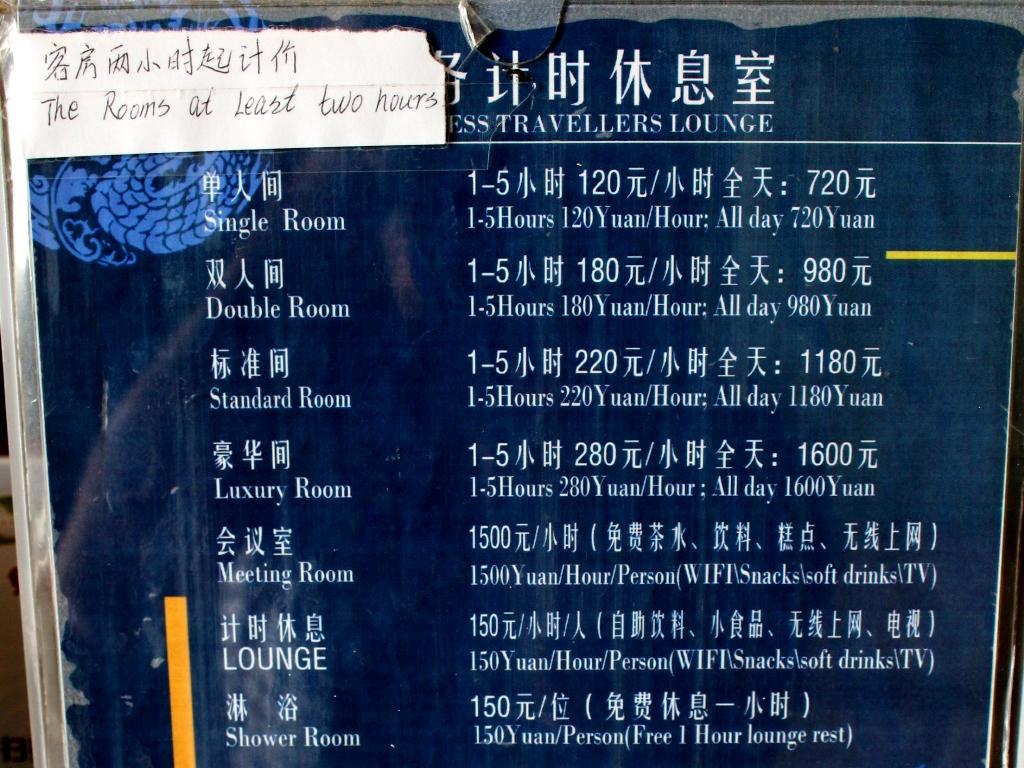 客房两小时起计价
The Rooms at Least two hours
务计时休息室
ESS TRAVELLERS LOUNGE
单人间 1-5小时 120元/小时全天：720元
Single Room 1-5Hours 120Yuan/Hour; All day 720Yuan
双人间 1-5小时 180元/小时全天：980元
Double Room 1-5Hours 180Yuan/Hour; All day 980Yuan
标准间 1-5小时 220元/小时全天：1180元
Standard Room 1-5Hours 220Yuan/Hour; All day 1180Yuan
豪华间 1-5小时 280元/小时全天：1600元
Luxury Room 1-5Hours 280Yuan/Hour ; All day 1600Yuan
会议室 1500元/小时（免费茶水、饮料、糕点、无线上网）
Meeting Room 1500Yuan/Hour/Person(WIFI\Snacks\soft drinks\TV)
计时休息 150元/小时/人（自助饮料、小食品、无线上网、电视）
LOUNGE 150Yuan/Hour/Person(WIFI\Snacks\soft drinks\TV)
淋 浴 150元/位（免费休息一小时）
Shower Room 150Yuan/Person(Free 1 Hour lounge rest)